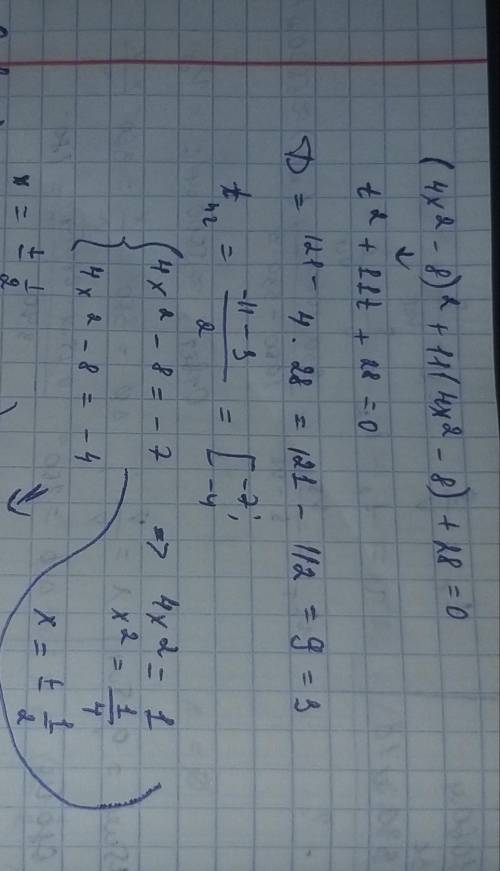 (4x² - 8)² + 11(4x² - 8) + 28 = 0
t² + 11t + 28 = 0
D = 121 - 4 · 28 = 121 - 112 = 9 = 3
t₁,₂ = (-11 - 3)/2 = [ -7; -4
{ 4x² - 8 = -7 => 4x² = 1
{ 4x² - 8 = -4
x² = 1/4
x = ± 1/2
x = ± 1/2